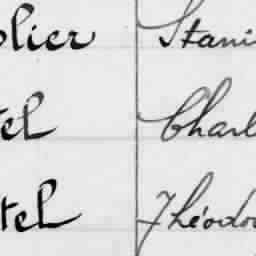 olier Stani
tel Charl
tel Théodo